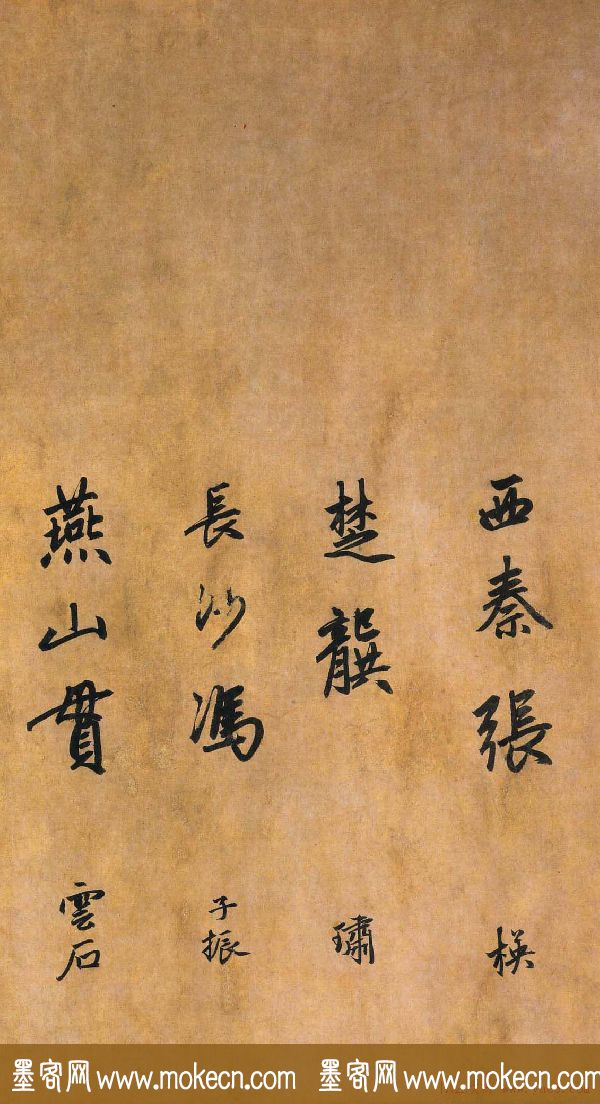 西秦張 楧
楚龔 璛
長沙馮 子振
燕山貫 雲石
墨客网 www.mokecn.com 墨客网 www.mokecn.com